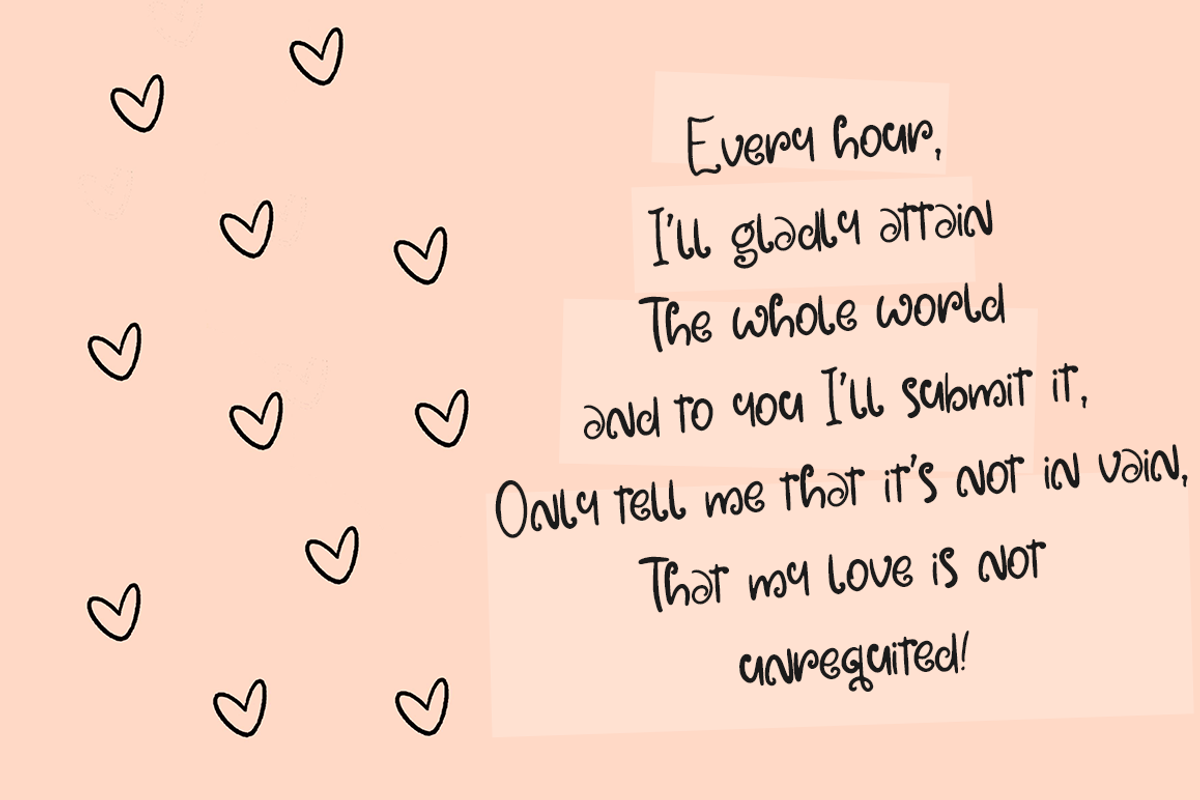 Every hour,
I'll gladly attain
The whole world
and to you I'll submit it,
Only tell me that it's not in vain,
That my love is not
unrequited!